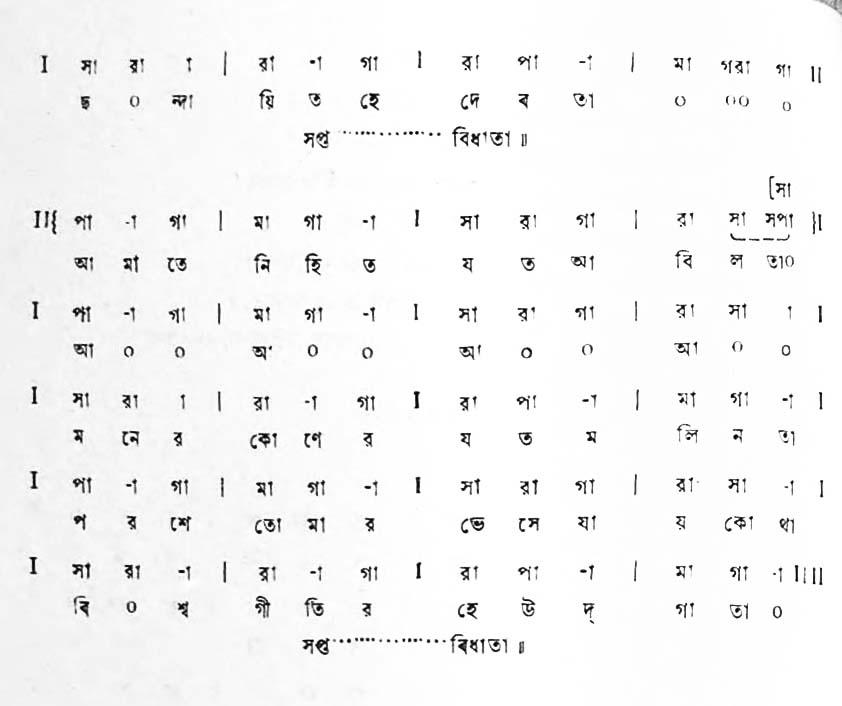 I সা রা া | রা -া গা I রা পা -া | মা গরা গা II
ছ ০ ন্দা য়ি ত হে দে ব তা ০ ০০ ০
সপ্ত ................ বিধাতা ॥
[সা
II{ পা -া গা | মা গা -া I সা রা গা | রা সা সপা }I
আ মা তে নি হি ত য ত আ বি ল তা০
I পা -া গা | মা গা -া I সা রা গা | রা সা া I
আ ০ ০ আ ০ ০ আ ০ ০ আ ০ ০
I সা রা া | রা -া গা I রা পা -া | মা গা -া I
ম নে র কো ণে র য ত ম লি ন তা
I পা -া গা | মা গা -া I সা রা গা | রা সা -া I
প র শে তো মা র ভে সে যা য় কো থা
I সা রা -া | রা -া গা I রা পা -া | মা গা -া IIII
বি ০ শ্ব গী তি র হে উ দ্ গা তা ০
সপ্ত .................. বিধাতা ॥